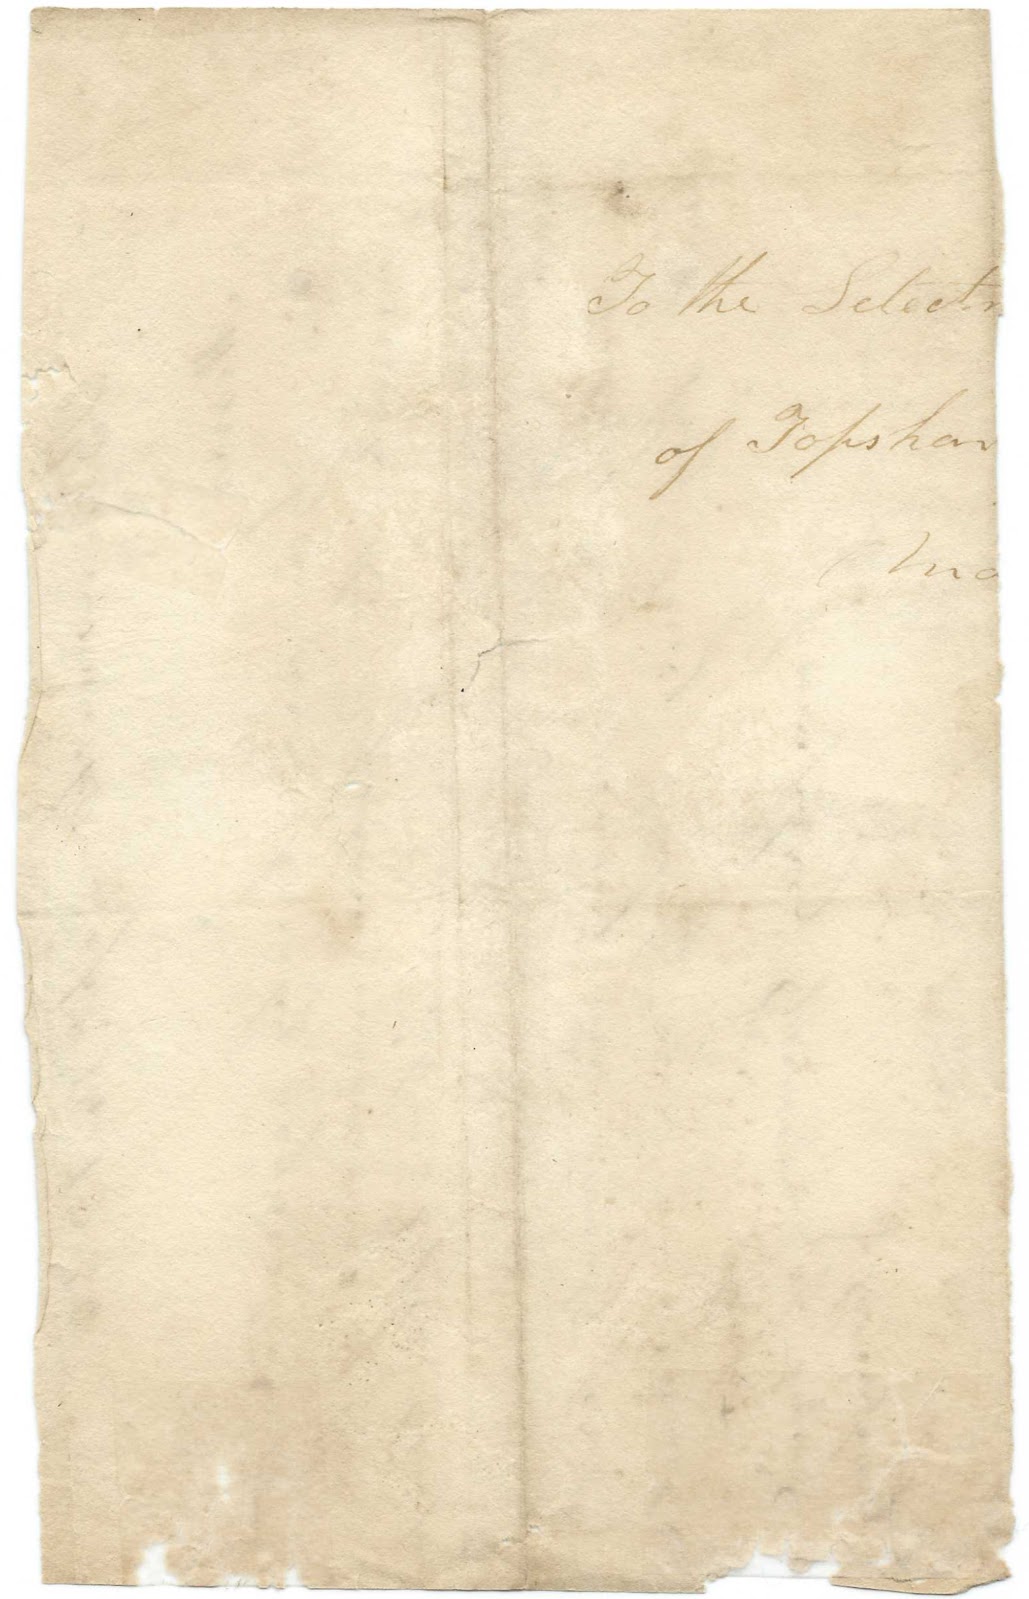 To the Selectm
of Topsham